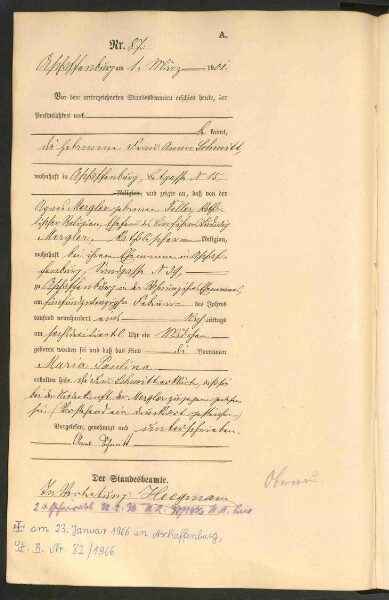 A.
Nr. 87.
Aschaffenburg am 1. März 1901.
Vor dem unterzeichneten Standesbeamten erschien heute, der
Persönlichkeit nach
be kannt,
die Hebamme Frau Anna Schmitt,
wohnhaft in Aschaffenburg, N 15
Religion, und zeigte an, daß von der
Agnes Mergler geborenen Feller, katho-
lischer Religion, Ehefrau des
Mergler, katholischer Religion,
wohnhaft bei ihrem Ehemanne in Aschaf-
fenburg,
zu Aschaffenburg in der Wohnung ihres Ehemannes,
am fünfundzwanzigsten Februar des Jahres
tausend neunhundert eins Nach mittags
um Uhr ein Mädchen
geboren worden sei und daß das Kind die Vornamen
Maria Paulina
erhalten habe. Die Frau Schmitt erklärt, daß sie
bei der Niederkunft der Mergler zugegen gewesen
sei. (Vorstehend ein Druckwort gestrichen)
Vorgelesen, genehmigt und unterschrieben.
Anna Schmitt
Der Standesbeamte.
In Vertretung Heegmann
am 23. Januar 1966 in Aschaffenburg,
St. B. Nr. 82/1966